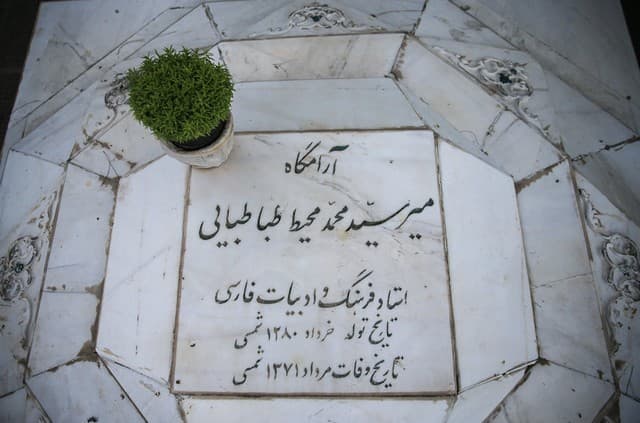 آرامگاه
میر سیّد محمّد محیط طباطبایی
استاد فرهنگ و ادبیات فارسی
تاریخ تولد خرداد ۱۲۸۰ شمسی
تاریخ وفات مرداد ۱۳۷۱ شمسی